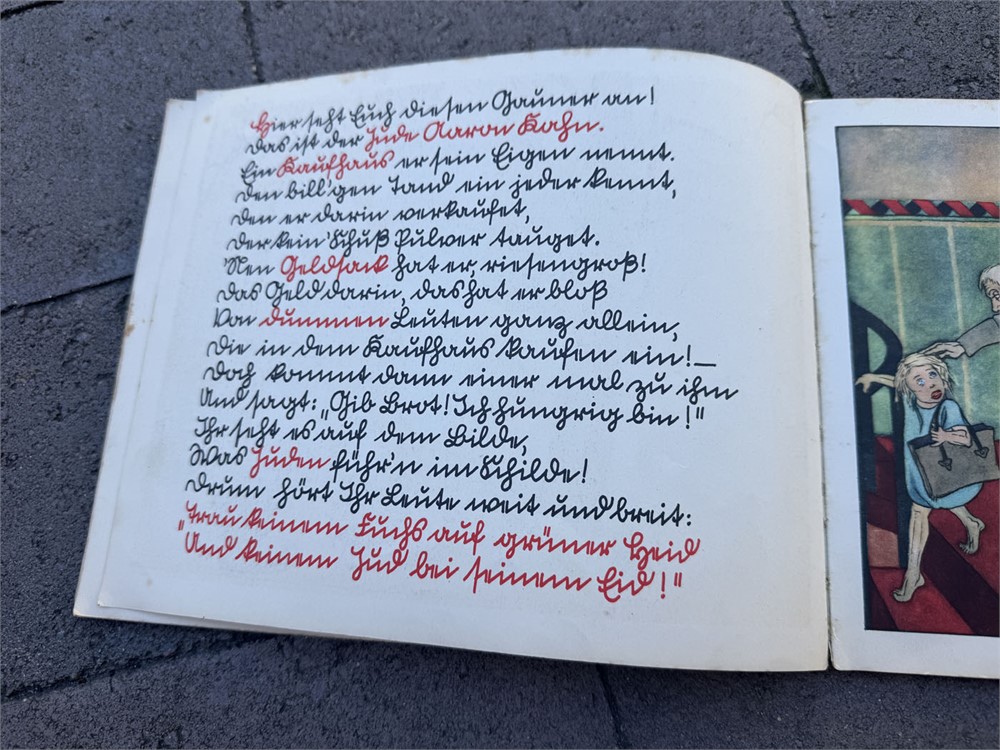 Hier seht Euch diesen Gauner an!
Das ist der Jude Aaron Kahn.
Ein Kaufhaus er sein Eigen nennt.
Den bill'gen Tand ein jeder kennt,
Den er darin verkaufet,
Der kein' Schuß Pulver tauget.
Nen Geldsack hat er, riesengroß!
Das Geld darin, das hat er bloß
Von dummen Leuten ganz allein,
Die in dem Kaufhaus kaufen ein! _
Doch kommt dann einer mal zu ihm
Und sagt: „Gib Brot! Ich hungrig bin!"
Ihr seht es auf dem Bilde,
Was Juden führ'n im Schilde!
Drum hört Ihr Leute weit und breit:
„Trau keinem Fuchs auf grüner Heid
Und keinem Jud bei seinem Eid!"